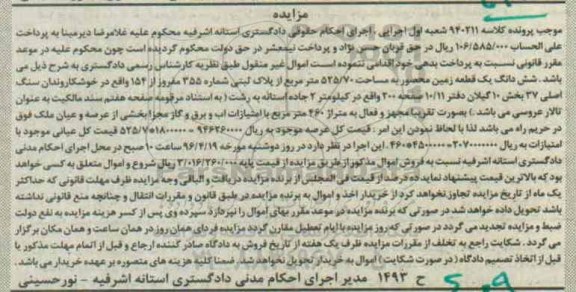 مزایده
موجب پرونده کلاسه ۹۴۰۲۱۱ شعبه اول اجرایی ، اجرای احکام حقوقی دادگستری آستانه اشرفیه محکوم علیه غلامرضا دیرمینا به پرداخت
علی الحساب ۱۰۶/۵۸۵/۰۰۰ ریال در حق قربان حسن نژاد و پرداخت نیمعشر در حق دولت محکوم گردیده است چون محکوم علیه در موعد
مقرر قانونی نسبت به پرداخت بدهی خود اقدامی ننموده است اموال غیر منقول طبق نظریه کارشناس رسمی دادگستری به شرح ذیل می
باشد . شش دانگ یک قطعه زمین محصور به مساحت ۵۲۵/۷۰ متر مربع از پلاک ثبتی شماره ۳۵۵ مفروز از ۱۵۴ واقع در خوشکاروندان سنگ
اصلی ۳۷ بخش ۱۰ گیلان دفتر ۱۰/۱۱ صفحه ۲۰۰ واقع در کیلومتر ۲ جاده آستانه به رشت (به استناد مرقومه صفحه هفتم سند مالکیت به عنوان
تالار عروسی می باشد .) بصورت تقریبا مجهز و فعال به متراژ ۴۶۰ متر مربع با امتیازات اب و برق و گاز مجزا بخشی از عرصه و عیان ملک فوق
در حریم راه می باشد لذا با لحاظ نمودن این امر : قیمت کل عرصه موجود به ریال ۹۴۶۲۶۰۰۰۰ = ۱۸۰۰۰۰۰*۵۲۵/۷ قیمت کل عیانی موجود با
امتیازات به ریال ۲۰۷۰۰۰۰۰۰۰ =۴۵۰۰۰۰۰*۴۶۰ . این اجرا در نظر دارد در روز دوشنبه مورخه ۹۶/۴/۱۹ ساعت ۱۰ صبح در محل اجرای احکام مدنی
دادگستری آستانه اشرفیه نسبت به فروش اموال مذکور از طریق مزایده از قیمت پایه ۳/۰۱۶/۲۶۰/۰۰۰ ریال شروع و اموال متعلق به کسی خواهد
بود که بالاترین قیمت پیشنهاد نماید ده درصد از قیمت فی المجلس از برنده مزایده دریافت و الباقی وجه مزایده ظرف مهلت قانونی که حداکثر
یک ماه از تاریخ مزایده تجاوز نخواهد کرد از خریدار اخذ و اموال به برنده مزایده در طبق قانون و مقررات انتقال و چنانچه منع قانونی نداشته
باشد تحویل داده خواهد شد در صورتی که برنده مزایده در موعد مقرر بهای اموال را نپردازد سپرده وی پس از کسر هزینه مزایده به نفع دولت
ضبط و مزایده تجدید می گردد در صورتی که روز مزایده با ایام تعطیل مقارن گردد مزایده فردای همان روز در همان ساعت و همان مکان برگزار
می گردد . شکایت راجع به تخلف از مقررات مزایده ظرف یک هفته از تاریخ فروش به دادگاه صادر کننده ارجاع و قبل از اتمام مهلت مذکور یا
قبل از اتخاذ تصمیم دادگاه ( در صورت شکایت ) اموال به خریدار تحویل نخواهد شد . ضمنا کلیه هزینه های متصوره بر عهده خریدار می باشد .
ح ۱۴۹۳ مدیر اجرای احکام مدنی دادگستری آستانه اشرفیه – نورحسینی